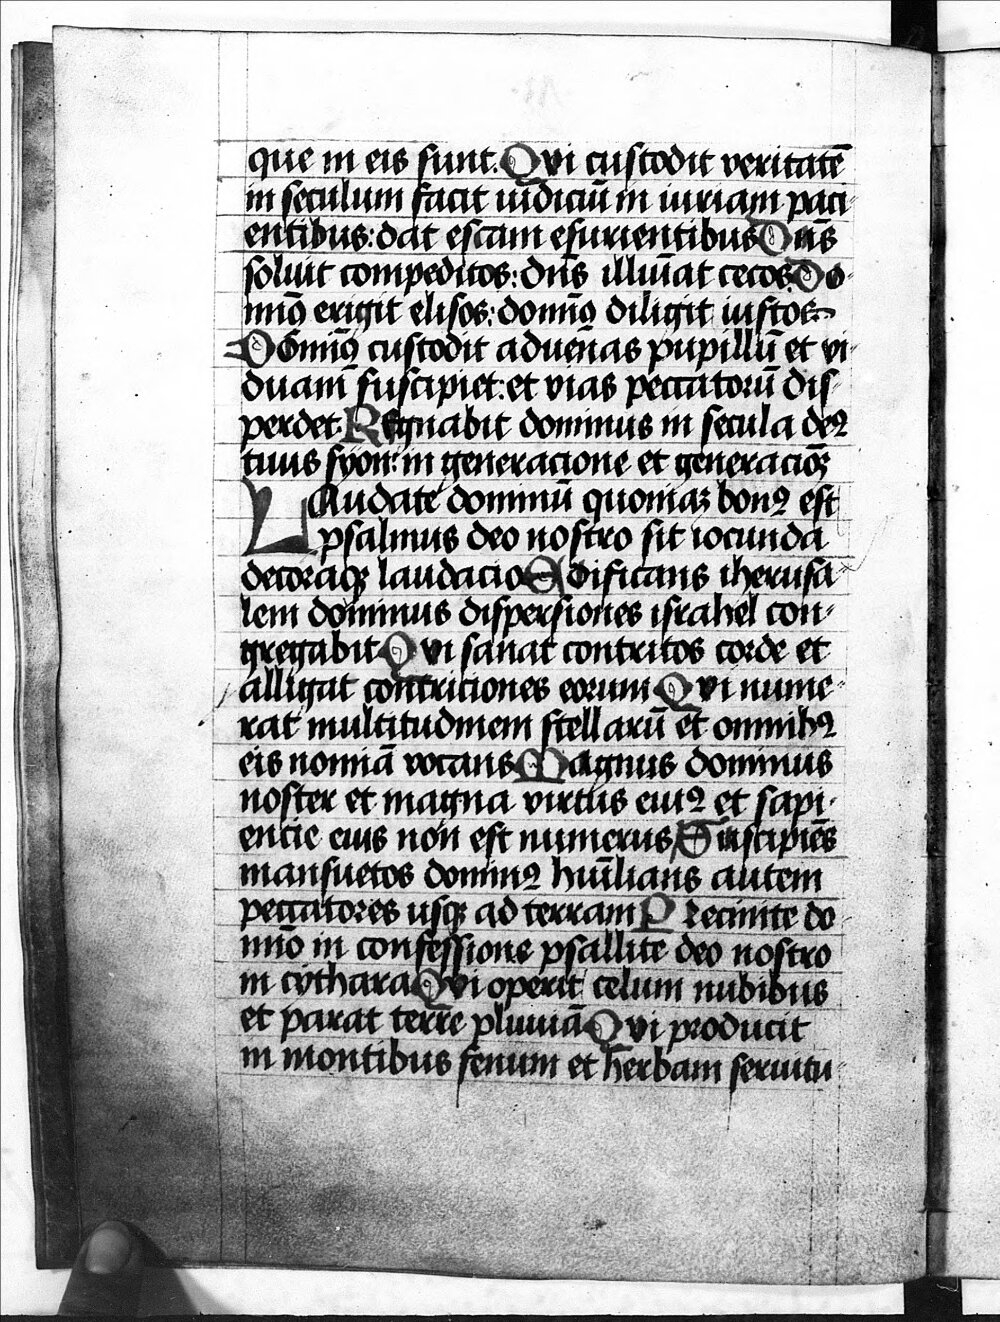 que in eis sunt. Qvi custodit veritatē
in seculum facit iudiciū in iuriam paci-
entibus: dat escam esurientibus Dn̄s
soluit compeditos: dn̄s illuīat cecos Do-
minꝰ erigit elisos: dominꝰ diligit iustos
Dominꝰ custodit aduenas pupillū et vi-
duam suscipiet: et vias peccatorū dis-
perdet. Regnabit dominus in secula deꝰ
tuus syon: in generacione et generacioꝫ
Laudate dominū quoniaꝫ bonꝰ est
psalmus deo nostro sit iocunda
decoraqꝫ laudacio Edificans iherusa-
lem dominus dispersiones israhel con-
gregabit Qvi sanat contritos corde et
alligat contriciones eorum Qvi nume-
rat multitudinem stellarū et omnibꝰ
eis nominā vocans Magnus dominus
noster et magna virtus eiuꝰ et sapi-
encie eius non est numerus Suscipiēs
mansuetos dominꝰ huīlians autem
peccatores usqꝫ ad terram Precinite do
mīo in confessione psallite deo nostro
in cythara Qvi operit celum nubibus
et parat terre pluuiā Qvi producit
in montibus fenum et herbam seruitu